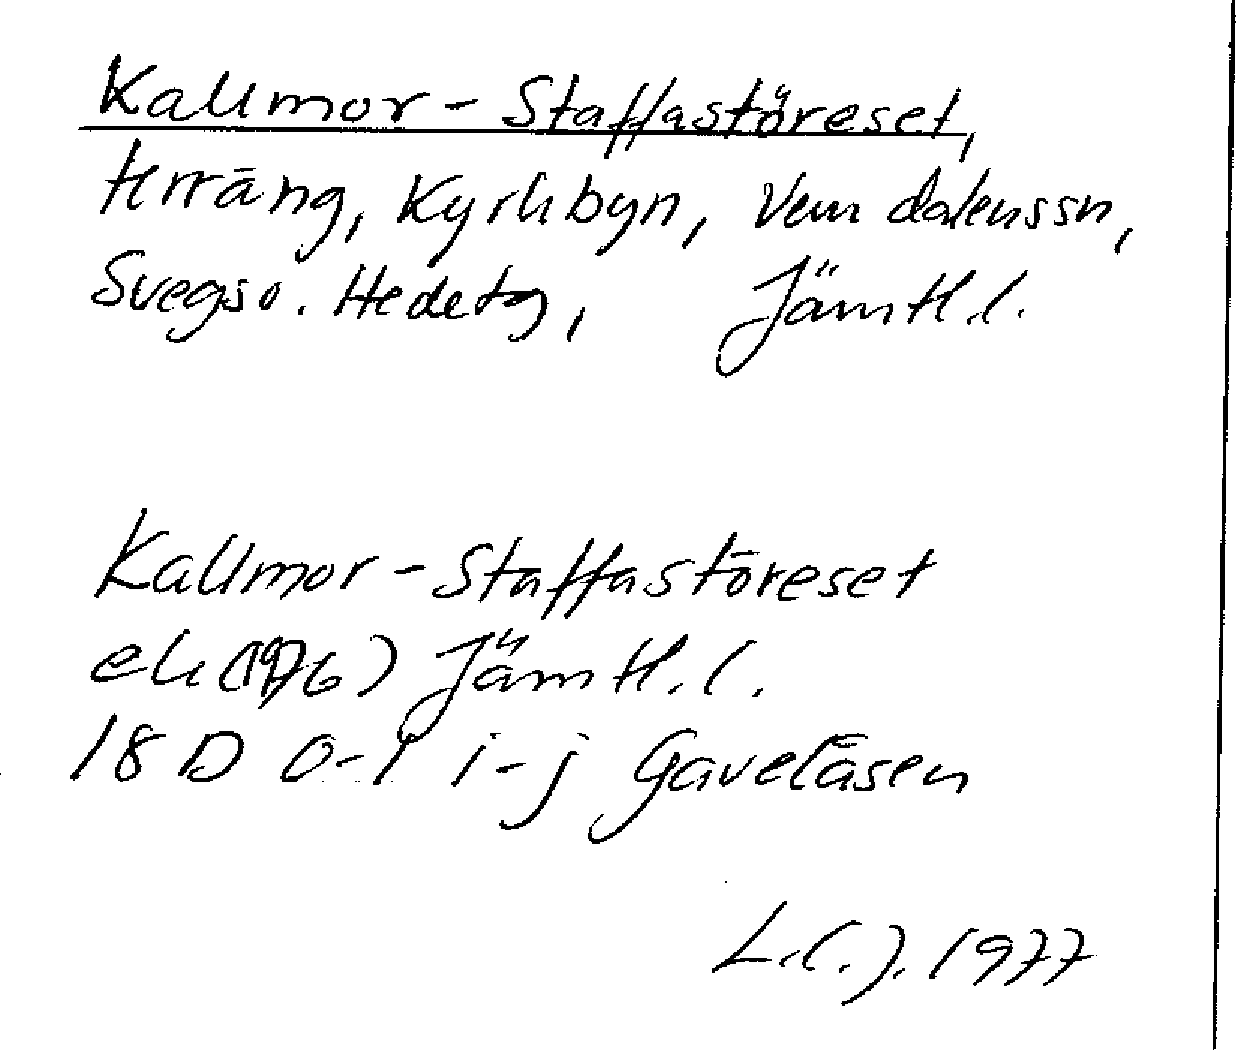 Kallmor-Staffastöreset,
terräng, Kyrkbyn, Vemdalens sn,
Svegs o. Hede tg, Jämtl.l.
Kallmor-Staffastöreset
ek (1976) Jämtl.l.
18 D 0-1 i-j Gavelåsen
1977